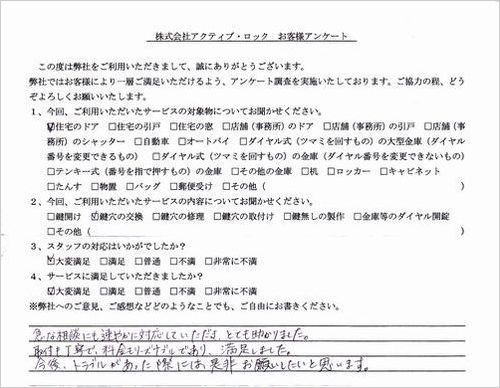 株式会社アクティブ・ロック　お客様アンケート
この度は弊社をご利用いただきまして、誠にありがとうございます。
弊社ではお客様により一層ご満足いただけるよう、アンケート調査を実施いたしております。ご協力の程、どう
ぞよろしくお願いいたします。
1、今回、ご利用いただいたサービスの対象物についてお聞かせください。
☑住宅のドア　□住宅の引戸　□住宅の窓　□店舗（事務所）のドア　□店舗（事務所）の引戸　□店舗（事務
所）のシャッター　□自動車　□オートバイ　□ダイヤル式（ツマミを回すもの）の大型金庫（ダイヤル
番号を変更できるもの）　□ダイヤル式（ツマミを回すもの）の金庫（ダイヤル番号を変更できないもの）
□テンキー式（番号を指で押すもの）の金庫　□その他の金庫　□机　□ロッカー　□キャビネット
□たんす　□物置　□バッグ　□郵便受け　□その他（　　　）
2、今回、ご利用いただいたサービスの内容についてお聞かせください。
□鍵開け　☑鍵穴の交換　□鍵穴の修理　□鍵穴の取付け　□鍵無しの製作　□金庫等のダイヤル開錠
□その他（　　　）
3、スタッフの対応はいかがでしたか？
☑大変満足　□満足　□普通　□不満　□非常に不満
4、サービスに満足していただきましたか？
☑大変満足　□満足　□普通　□不満　□非常に不満
※弊社へのご意見、ご感想などどのようなことでも、ご自由にお書きください。
急な相談にも速やかに対応していただき、とても助かりました。
取付も丁寧で、料金もリーズナブルであり、満足しました。
今後、トラブルがあった際には是非お願いしたいと思います。